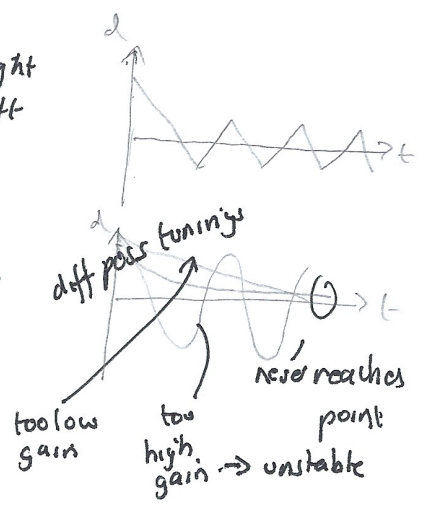 d
ght
tt
t
d
diff poss tunings
t
never reaches
point
too low
gain
too
high
gain → unstable